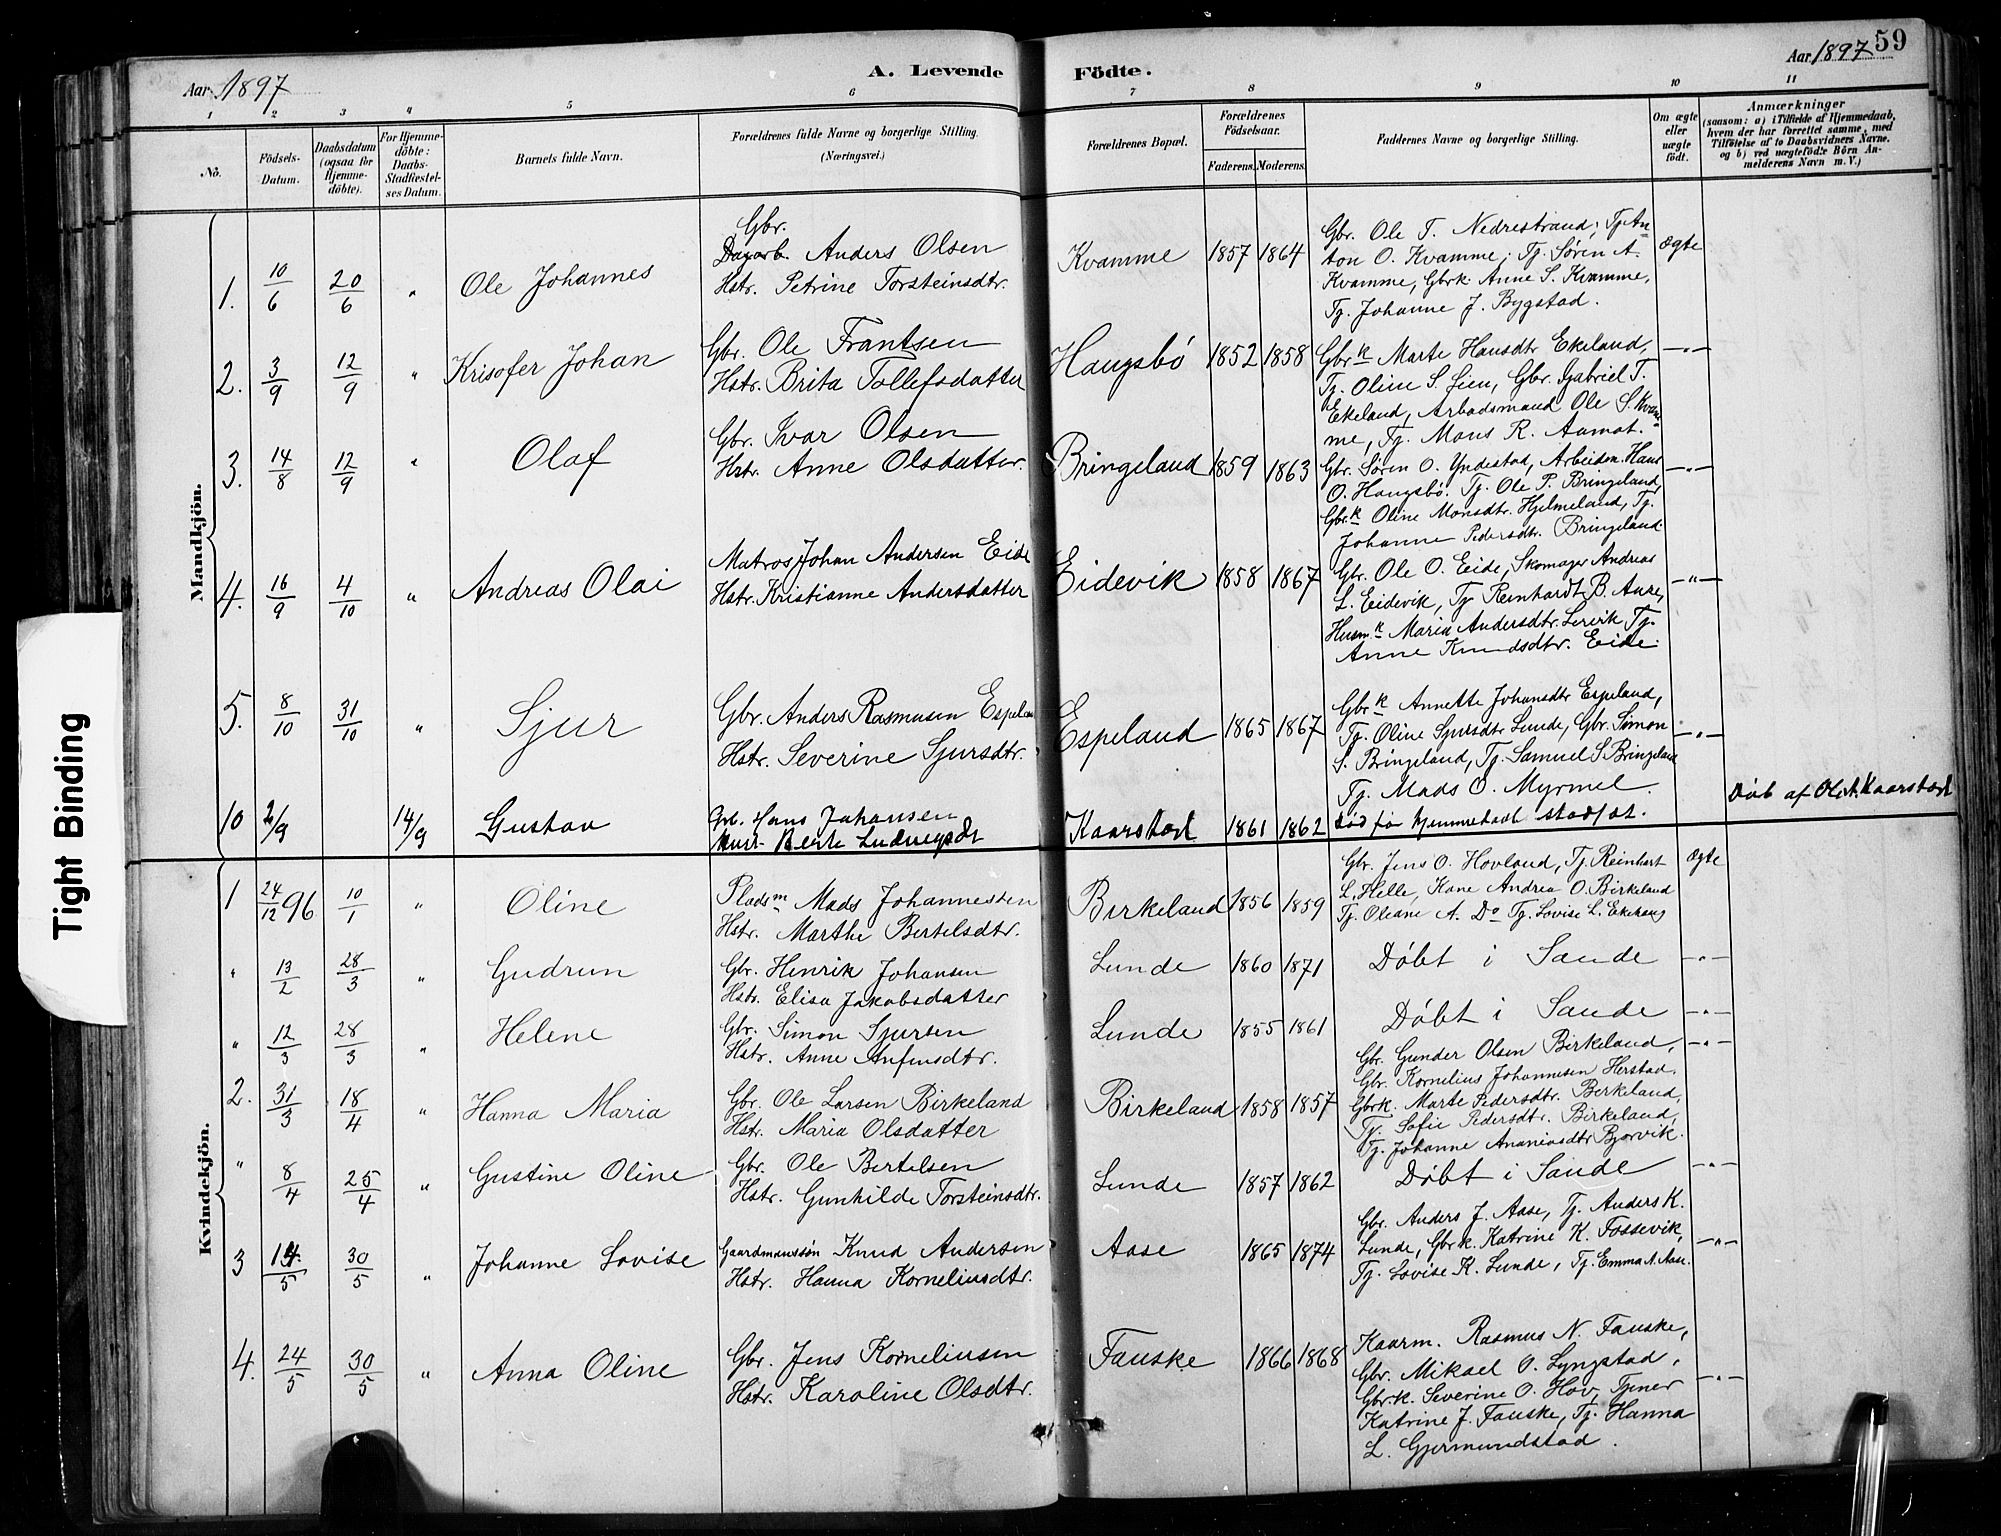 59
Aar 1897
A. Levende Födte.
Aar 1897
1 2 3 4 5 6 7 8 9 10 11
No.
Födsels-Datum.
Daabsdatum (ogsaa for Hjemmedöbte).
For Hjemmedöbte: Daabs-Stadfæstelses Datum.
Barnets fulde Navn.
Forældrenes fulde Navne og borgerlige Stilling. (Næringsvei.)
Forældrenes Bopæl.
Forældrenes Födselsaar.
Faderens. Moderens.
Faddernes Navne og borgerlige Stilling.
Om ægte eller uægte födt.
Anmærkninger
(saasom: a) i Tilfælde af Hjemmedaab,
hvem der har forrettet samme, med
Tilföielse af to Daabsvidners Navne.
og b) ved uægtefödte Börn Anmelderens Navn m. V.)
Mandkjön.
1. 10/6 20/6 " Ole Johannes
Gbr.
Dagarb. Anders Olsen
Hstr. Petrine Torsteinsdtr.
Kvamme 1857 1864
Gbr. Ole T. Nedrestrand; Tj. An-
ton O. Kvamme; Tj. Søren A.
Kvamme, Gbrk. Anne S. Kvamme,
Tj. Johanne J. Bygstad.
Ægte
2. 3/9 12/9 " Krisofer Johan
Gbr. Ole Frantsen
Hstr. Brita Tollefsdatter
Haugsbö 1852 1858
Gbrk Marte Hansdtr Ekeland,
Tj. Oline S. Lien, Gbr. Gabriel T.
Ekeland, Arbadsmand Ole S. Kvam-
me, Tj. Mons R. Aamot.
-"-
3. 14/8 12/9 " Olaf
Gbr. Ivar Olsen
Hstr. Anne Olsdatter.
Bringeland 1859 1863
Gbr. Søren O. Yndestad, Arbeidm. Hans
O. Haugsbö. Tj. Ole P. Bringeland,
Gbrk Oline Monsdtr. Hjelmeland, Tj.
Johanne Pedersdtr. Bringeland
-"-
4. 16/9 4/10 " Andreas Olai
Matros Johan Andersen Eide
Hstr. Kristianne Andersdatter
Eidevik 1858 1867
Gbr. Ole O. Eide, Skomager Andreas
L. Eidevik, Tj Reinhardt B. Aase,
Husm.k Maria Andersdtr. Lervik Tj.
Anne Knudsdtr. Eide.
-"-
5. 8/10 31/10 " Sjur
Gbr. Anders Rasmusen Espeland
Hstr. Severine Sjursdtr.
Espeland 1865 1867
Gbrk Annette Johansdtr Espeland,
Tj. Oline Sjursdtr Lunde, Gbr. Simon
S. Bringeland, Tj. Samuel S Bringeland
Tj. Mads O. Myrmel.
-"-
10 2/9 14/9 Gustav
Grb. Hans Johansen
Hust. Berte Ludvigsdt
Kaarstad 1861 1862
död før hjemmedaab stadfæt.
Döb af Ole A. Kaarstad
Kvindekjön.
1 24/12 96 10/1 " Oline
Pladsm Mads Johannessen
Hstr. Marthe Bertelsdtr.
Birkeland 1856 1859
Gbr. Jens O. Hovland, Tj. Reinhart
L. Helle, Kone Andrea O. Birkeland
Tj. Oleane A. Do Tj. Lovise L. Ekehaug
Ægte
" 13/2 28/3 " Gudrun
Gbr. Henrik Johansen
Hstr. Elisa Jakobsdatter
Lunde 1860 1871
Døbt i Sande
-"-
" 12/3 28/3 " Helene
Gbr. Simon Sjursen
Hstr. Anne Anfinsdtr.
Lunde 1855 1861
Døbt i Sande
-"-
2. 31/3 18/4 " Hanna Maria
Gbr. Ole Larsen Birkeland
Hstr. Maria Olsdatter
Birkeland 1858 1857
Gbr. Gunder Olsen Birkeland,
Gbr. Kornelius Johannesen Herstad.
Gbrk. Marte Pedersdtr. Berkeland,
Tj. Sofie Pedersdtr. Birkeland,
Tj. Johanne Ananiasdtr Bjorvik.
-"-
" 8/4 25/4 " Gustine Oline
Gbr. Ole Bertelsen
Hstr. Gunhilde Torsteinsdtr.
Lunde 1857 1862
Døbt i Sande
-"-
3 14/5 30/5 " Johanne Lovise
Gaardmanssön Knud Andersen
Hstr. Hanna Korneliusdtr.
Aase 1865 1874
Gbr. Anders J. Aase, Tj. Anders K.
Lunde, Gbrk. Katrine K. Fossevik,
Tj. Lovise K. Lunde, Tj. Emma A. Aase.
-"-
4. 24/5 30/5 " Anna Oline
Gbr. Jens Korneliusen
Hstr. Karoline Olsdtr.
Fauske 1866 1868
Kaarm. Rasmus N. Fauske,
Gbr. Mikael O. Lyngstad,
Gbr.k. Severine O. Hov, Tjener
Katrine J. Fauske, Tj. Hanna
L. Gjermundstad.
-"-
Tight Binding